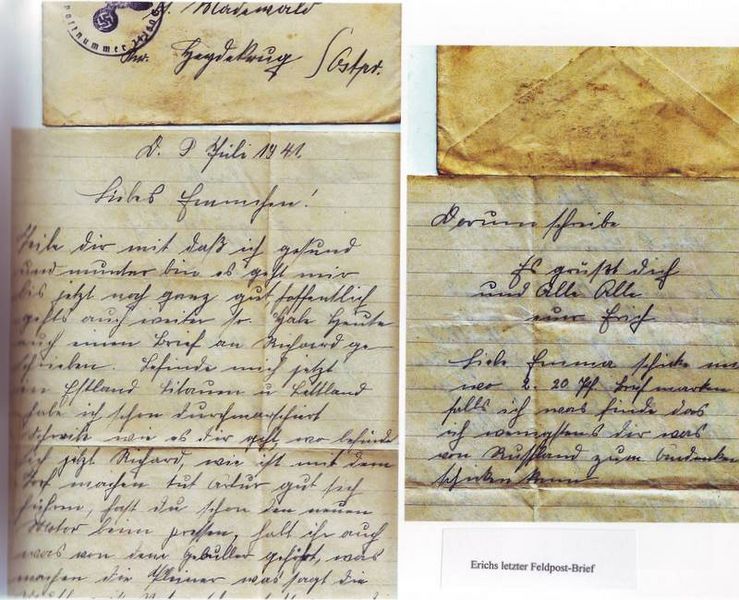 Feldpostnummer
Madewald
Heydekrug /Ostpr.
D. 9 Juli 1941.
Liebes Emmchen!
Teile dir mit daß ich gesund
und munter bin es geht mir
bis jetzt noch ganz gut hoffentlich
gehts auch weiter so. Habe Heute
auch einen Brief an Richard ge
schrieben. Befinde mich jetzt
in Estland Litauen u Lettland
habe ich schon durchmarschiert
Schreibe wie es dir geht, wo befindet
sich jetzt Richard, wie ist mit dem
Torf machen tut Artur gut sich
führen, hast du schon den neuen
Motor beim pressen, habt ihr auch
was von dem gehört, was
machen die Kleiner was sagt die
Darum schreibe
Es grüßt dich
und Alle Alle
euer Erich
Liebe Emma schicke mir
wo 2. 20 Pf. Briefmarken
falls ich was finde das
ich wenigstens dir was
von Russland zum Andenken
schicken kann
Erichs letzter Feldpost-Brief